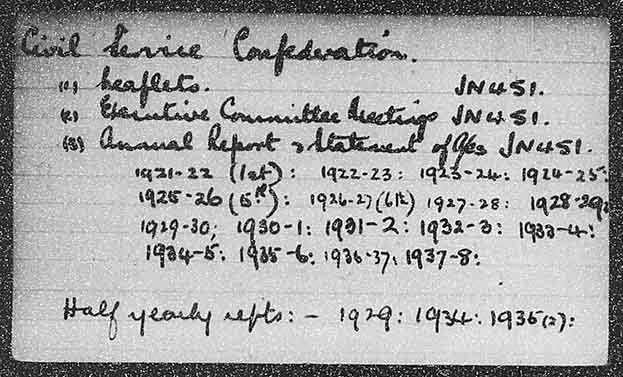 Civil Service Confederation.
(1) Leaflets. JN451.
(2) Executive Committee Meetings JN451.
(3) Annual Report & Statement of A/cs JN451.
1921-22 (1st): 1922-23: 1923-24: 1924-25:
1925-26 (5th): 1926-27 (6th) 1927-28: 1928-29:
1929-30; 1930-1: 1931-2: 1932-3: 1933-4:
1934-5: 1935-6: 1936-37: 1937-8:
Half yearly repts: - 1929: 1934: 1935(2):